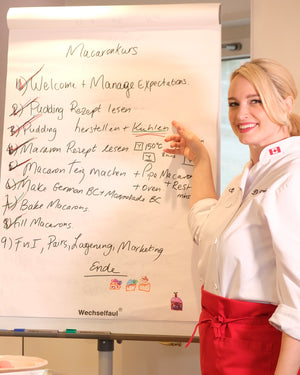 Macaronkurs
1) Welcome + Manage Expectations
2) Pudding Rezept lesen
3) Pudding herstellen + Kühlen
4) Macaron Rezept lesen 150°C
5) Macaron Teig machen + Pipe Macaron
6) Make German BC + Marmelade BC + oven + Rest
7) Bake Macarons
8) Fill Macarons
9) FnI, Pairs, Lagerung, Marketing
Ende
Wechselfaul